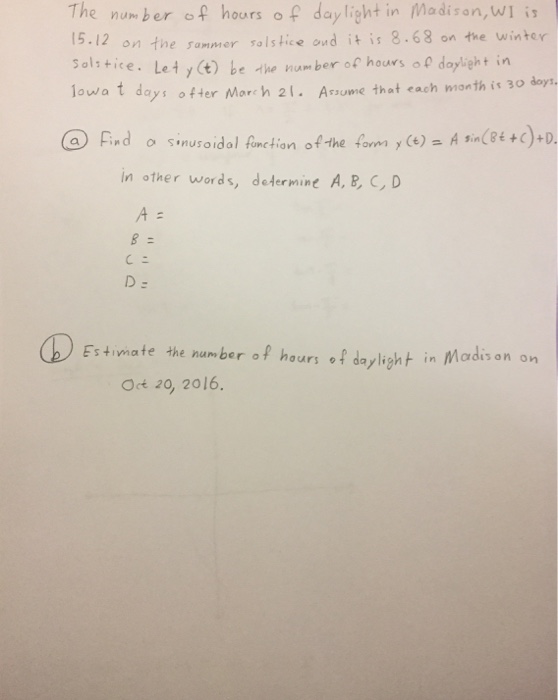 The number of hours of daylight in Madison, WI is
15.12 on the summer solstice and it is 8.68 on the winter
solstice. Let y(t) be the number of hours of daylight in
Iowa t days after March 21. Assume that each month is 30 days.
(a) Find a sinusoidal function of the form y(t) = A sin(Bt + C) + D.
in other words, determine A, B, C, D
A =
B =
C =
D =
(b) Estimate the number of hours of daylight in Madison on
Oct 20, 2016.